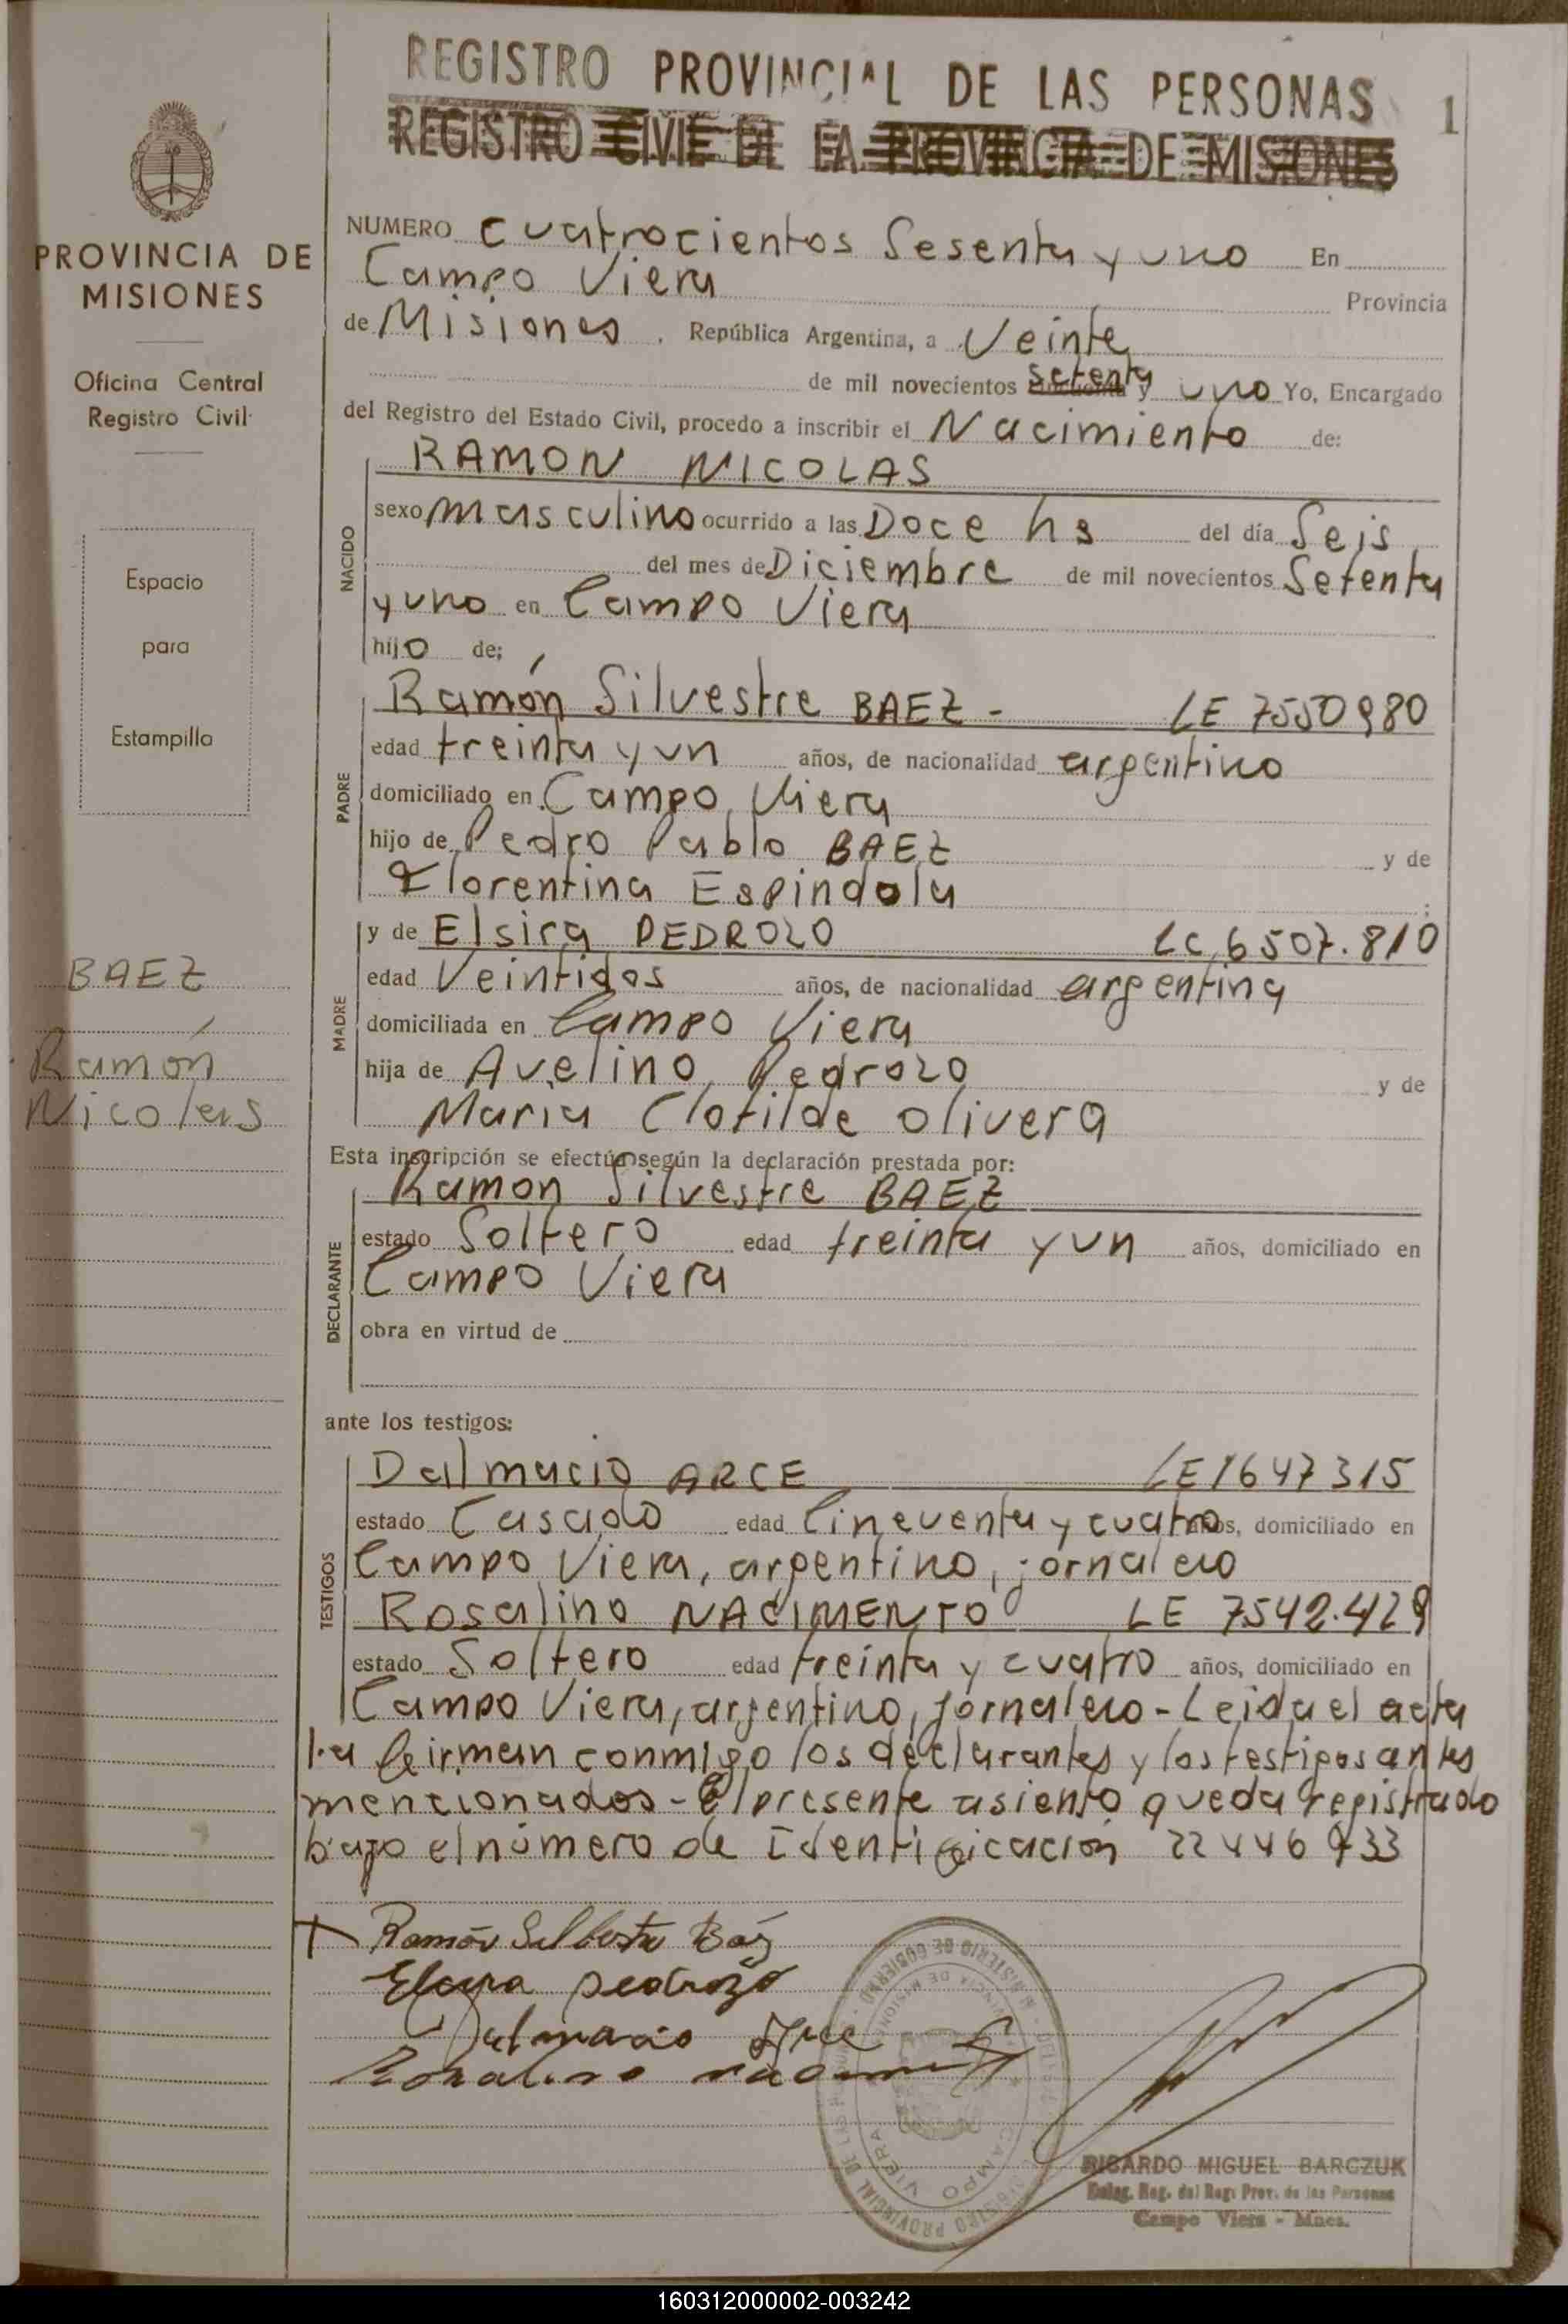 REGISTRO PROVINCIAL DE LAS PERSONAS 1
REGISTRO CIVIL DE LA PROVINCIA DE MISIONES
PROVINCIA DE
MISIONES
Oficina Central
Registro Civil
Espacio
para
Estampilla
BAEZ
Ramón
Nicolas
NUMERO cuatrocientos Sesenta y uno En
Campo Viera Provincia
de Misiones, República Argentina, a Veinte
de mil novecientos setenta y uno Yo, Encargado
del Registro del Estado Civil, procedo a inscribir el Nacimiento de:
NACIDO
RAMON NICOLAS
sexo masculino ocurrido a las Doce hs del día Seis
del mes de Diciembre de mil novecientos Setenta
y uno en Campo Viera
hijo de;
PADRE
Ramón Silvestre BAEZ - LE 7550980
edad treinta y un años, de nacionalidad argentino
domiciliado en Campo Viera
hijo de Pedro Pablo BAEZ y de
Florentina Espindola ;
MADRE
y de Elsira PEDROZO LC 6507.810
edad Veintidos años, de nacionalidad argentina
domiciliada en Campo Viera
hija de Avelino Pedrozo y de
Maria Clotilde Olivera
Esta inscripción se efectúa según la declaración prestada por:
DECLARANTE
Ramon Silvestre BAEZ
estado Soltero edad treinta y un años, domiciliado en
Campo Viera
obra en virtud de
ante los testigos:
TESTIGOS
Dalmacio ARCE LE 1647315
estado Casado edad Cincuenta y cuatro años, domiciliado en
Campo Viera, argentino, jornalero
Rosalino NACIMENTO LE 7542.429
estado Soltero edad treinta y cuatro años, domiciliado en
Campo Viera, argentino, jornalero - Leida el acta
la firman conmigo los declarantes y los testigos antes
mencionados - El presente asiento queda registrado
bajo el número de Identificación 22446933
Ramón Silbestre Báz
Elsira pedrozo
Dalmacio Arce
Rosalino
MINISTERIO DE GOBIERNO
PROVINCIA DE MISIONES
REGISTRO PROVINCIAL DE LAS
CAMPO VIERA
RICARDO MIGUEL BARCZUK
Deleg. Reg. del Reg. Prov. de las Personas
Campo Viera - Mnes.
160312000002-003242